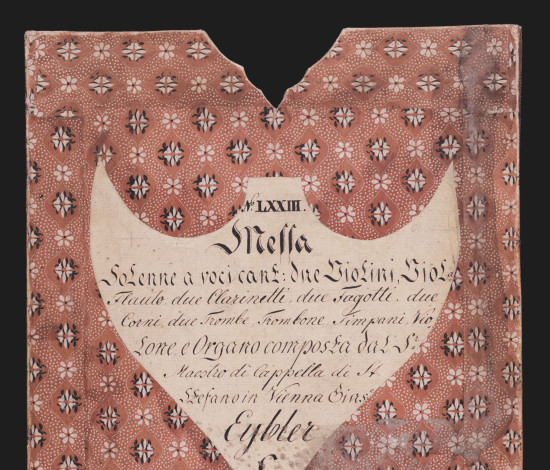 No LXXIII.
Messa
Solenne a voci cant: due Violini, Viola
Flauto due Clarinetti, due Fagotti, due
Corni, due Trombe, Trombone, Timpani, Vio
lone, e Organo composta dal Sr.
Maestro di Cappella di St
Stefano in Vienna Gius
Eybler